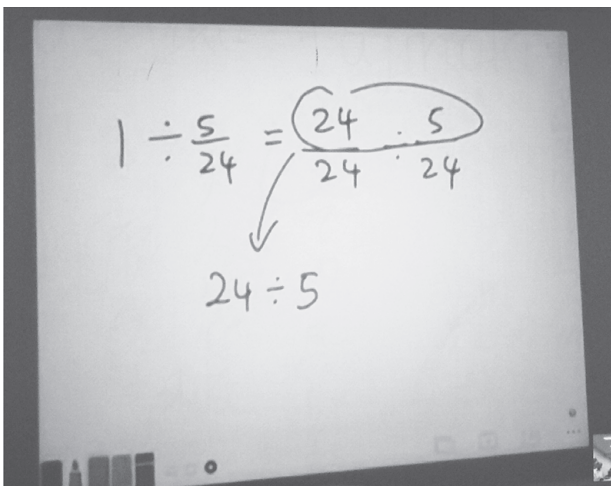 1 ÷ 5/24 = 24/24 ÷ 5/24
24 ÷ 5